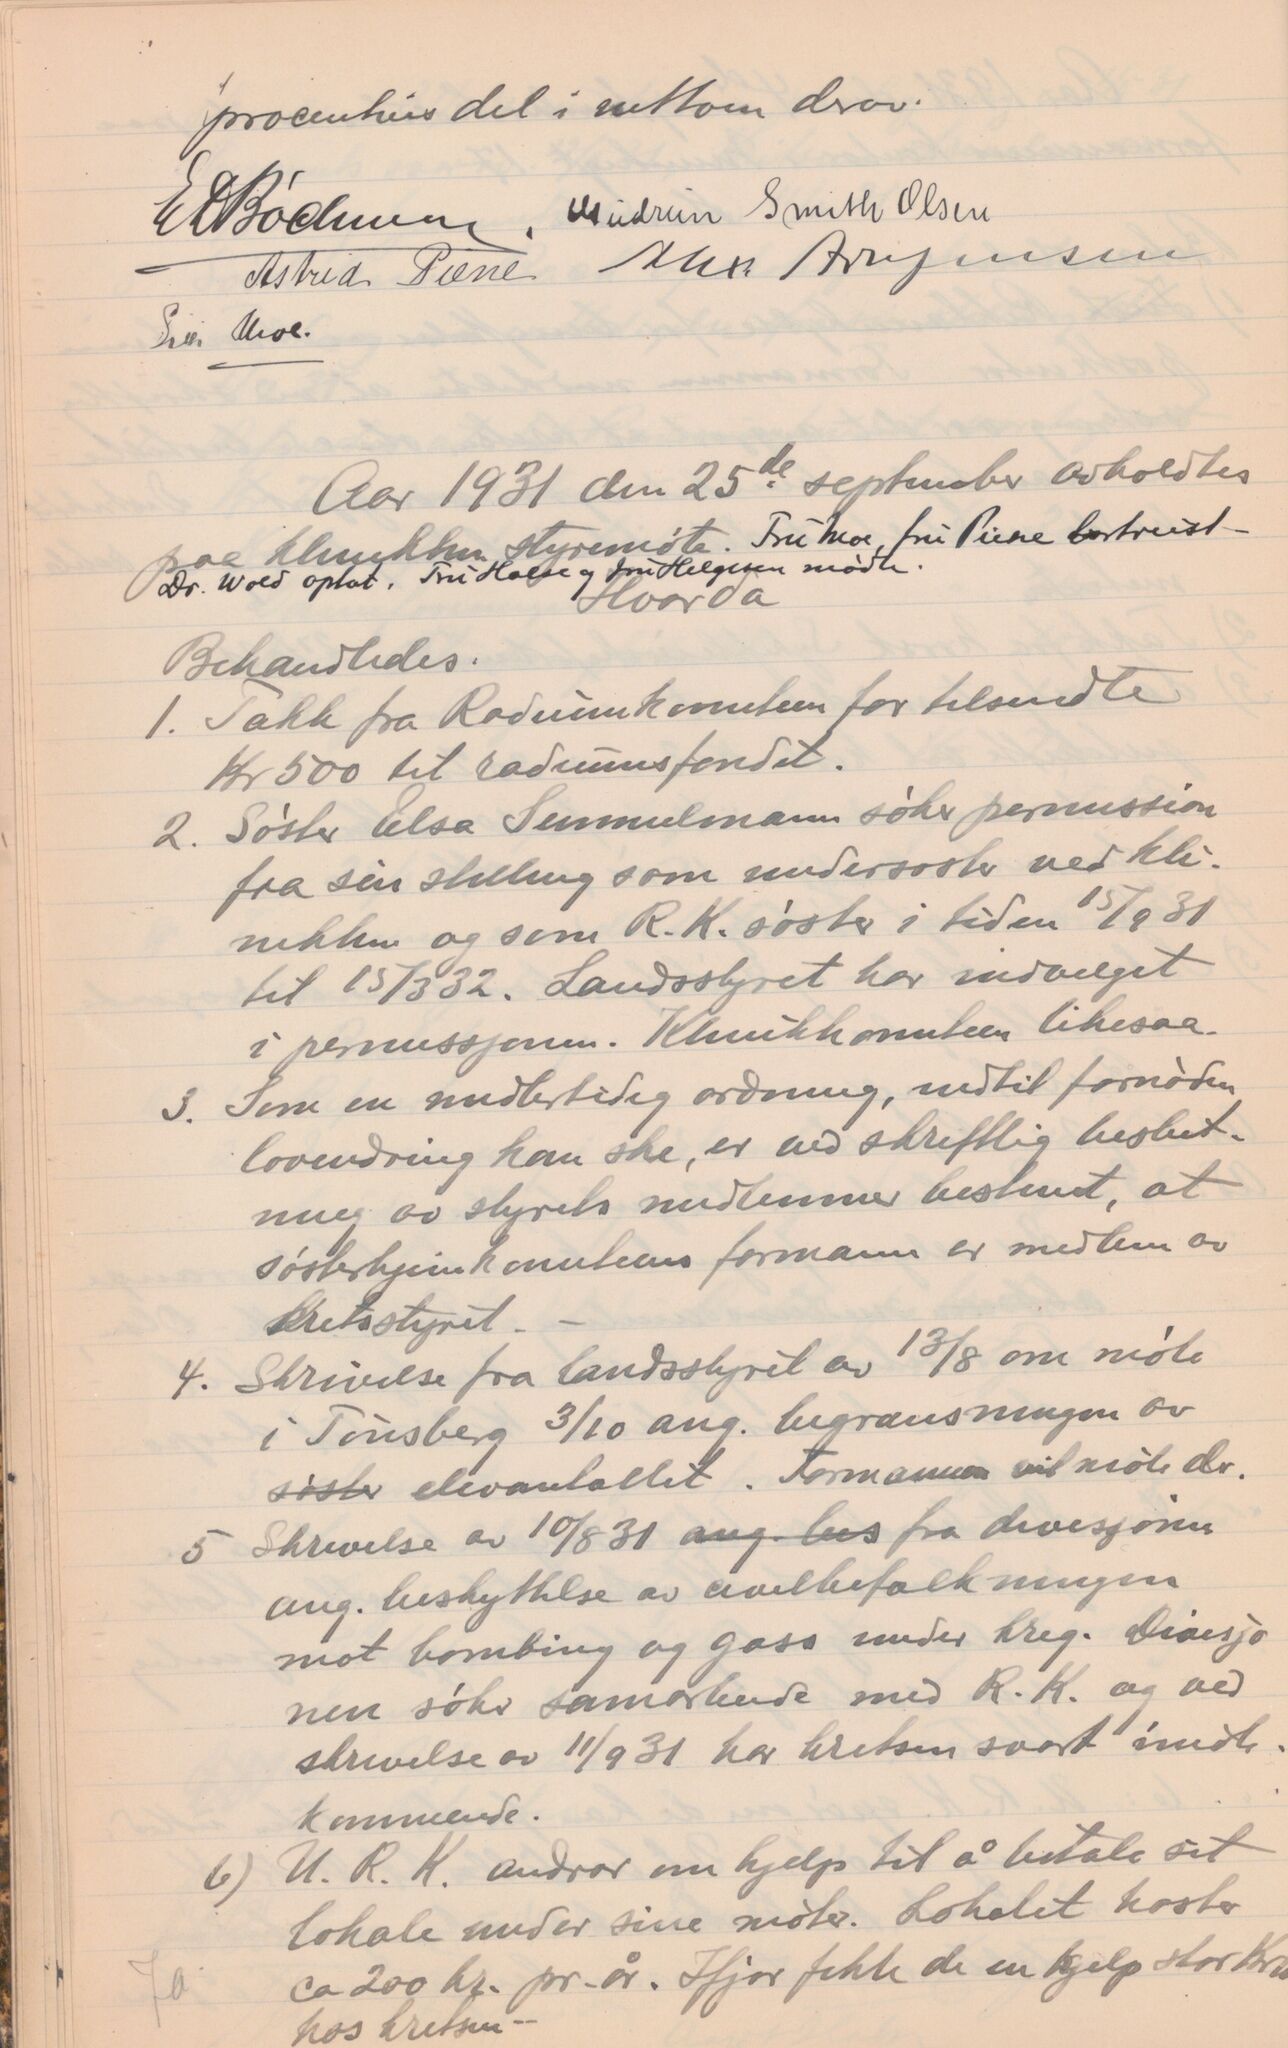 procentvis del i nettoen derav.
E Bødtker. Gudrun Smith Olsen
Astrid Piene Alex Brynjensen
Siri Moe.
Aar 1931 den 25de september avholdtes
paa klinikken styremøte. Fru Moe, fru Piene bortreist -
Dr. Wold optat. Fru Holse og fru Helgesen mødte.
Hvorda
Behandledes.
1. Takk fra Radiumkomiteen for tilsendte
Kr 500 til radiumsfondet.
2. Søster Elsa Semmelmann søker permission
fra sin stilling som undersøster ved kli-
nikken og som R.K. søster i tiden 15/9 31
til 15/3 32. Landsstyret har indvilget
i permissjonen. Klinikkomiteen likesaa.
3. Som en midlertidig ordning, indtil fornøden
lovendring kan ske, er ved skriftlig beslut-
ning av styrets medlemmer bestemt, at
søsterhjemkomiteens formann er medlem av
kretsstyret. -
4. Skrivelse fra landsstyret av 13/8 om møte
i Tønsberg 3/10 ang. begrænsningen av
søster elevantallet. Formannen vil møte der.
5 Skrivelse av 10/8 31 ang. bes fra divisjonen
ang. beskyttelse av civilbefolkningen
mot bombing og gass under krig. Divisjo
nen søker samarbeide med R.K. og ved
skrivelse av 11/9 31 har kretsen svart imøte-
kommende.
6) U.R.K. andrar om hjelp til å betale sit
lokale under sine møter. Lokalet koster
ca 200 kr. pr. år. Ifjor fikk de en hjelp stor Kr
hos kretsen -
Ja